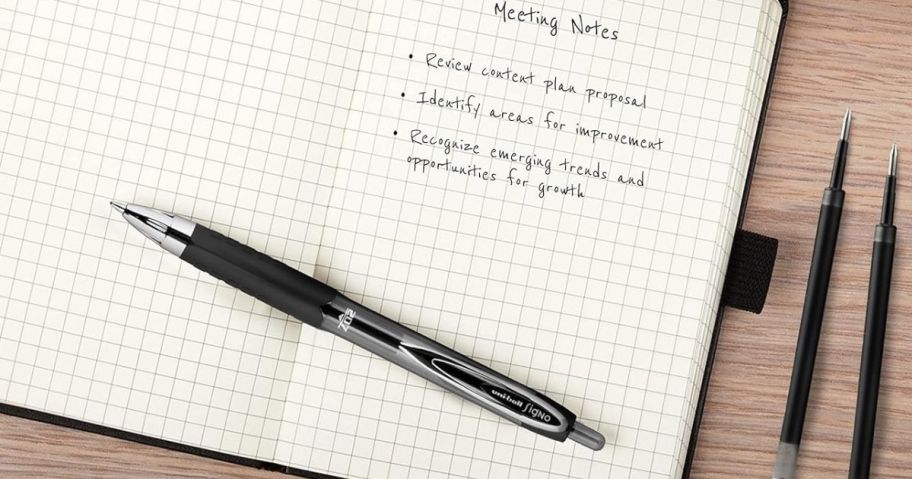 Meeting Notes
• Review content plan proposal
• Identify areas for improvement
• Recognize emerging trends and
opportunities for growth
207
uni-ball SIGNO